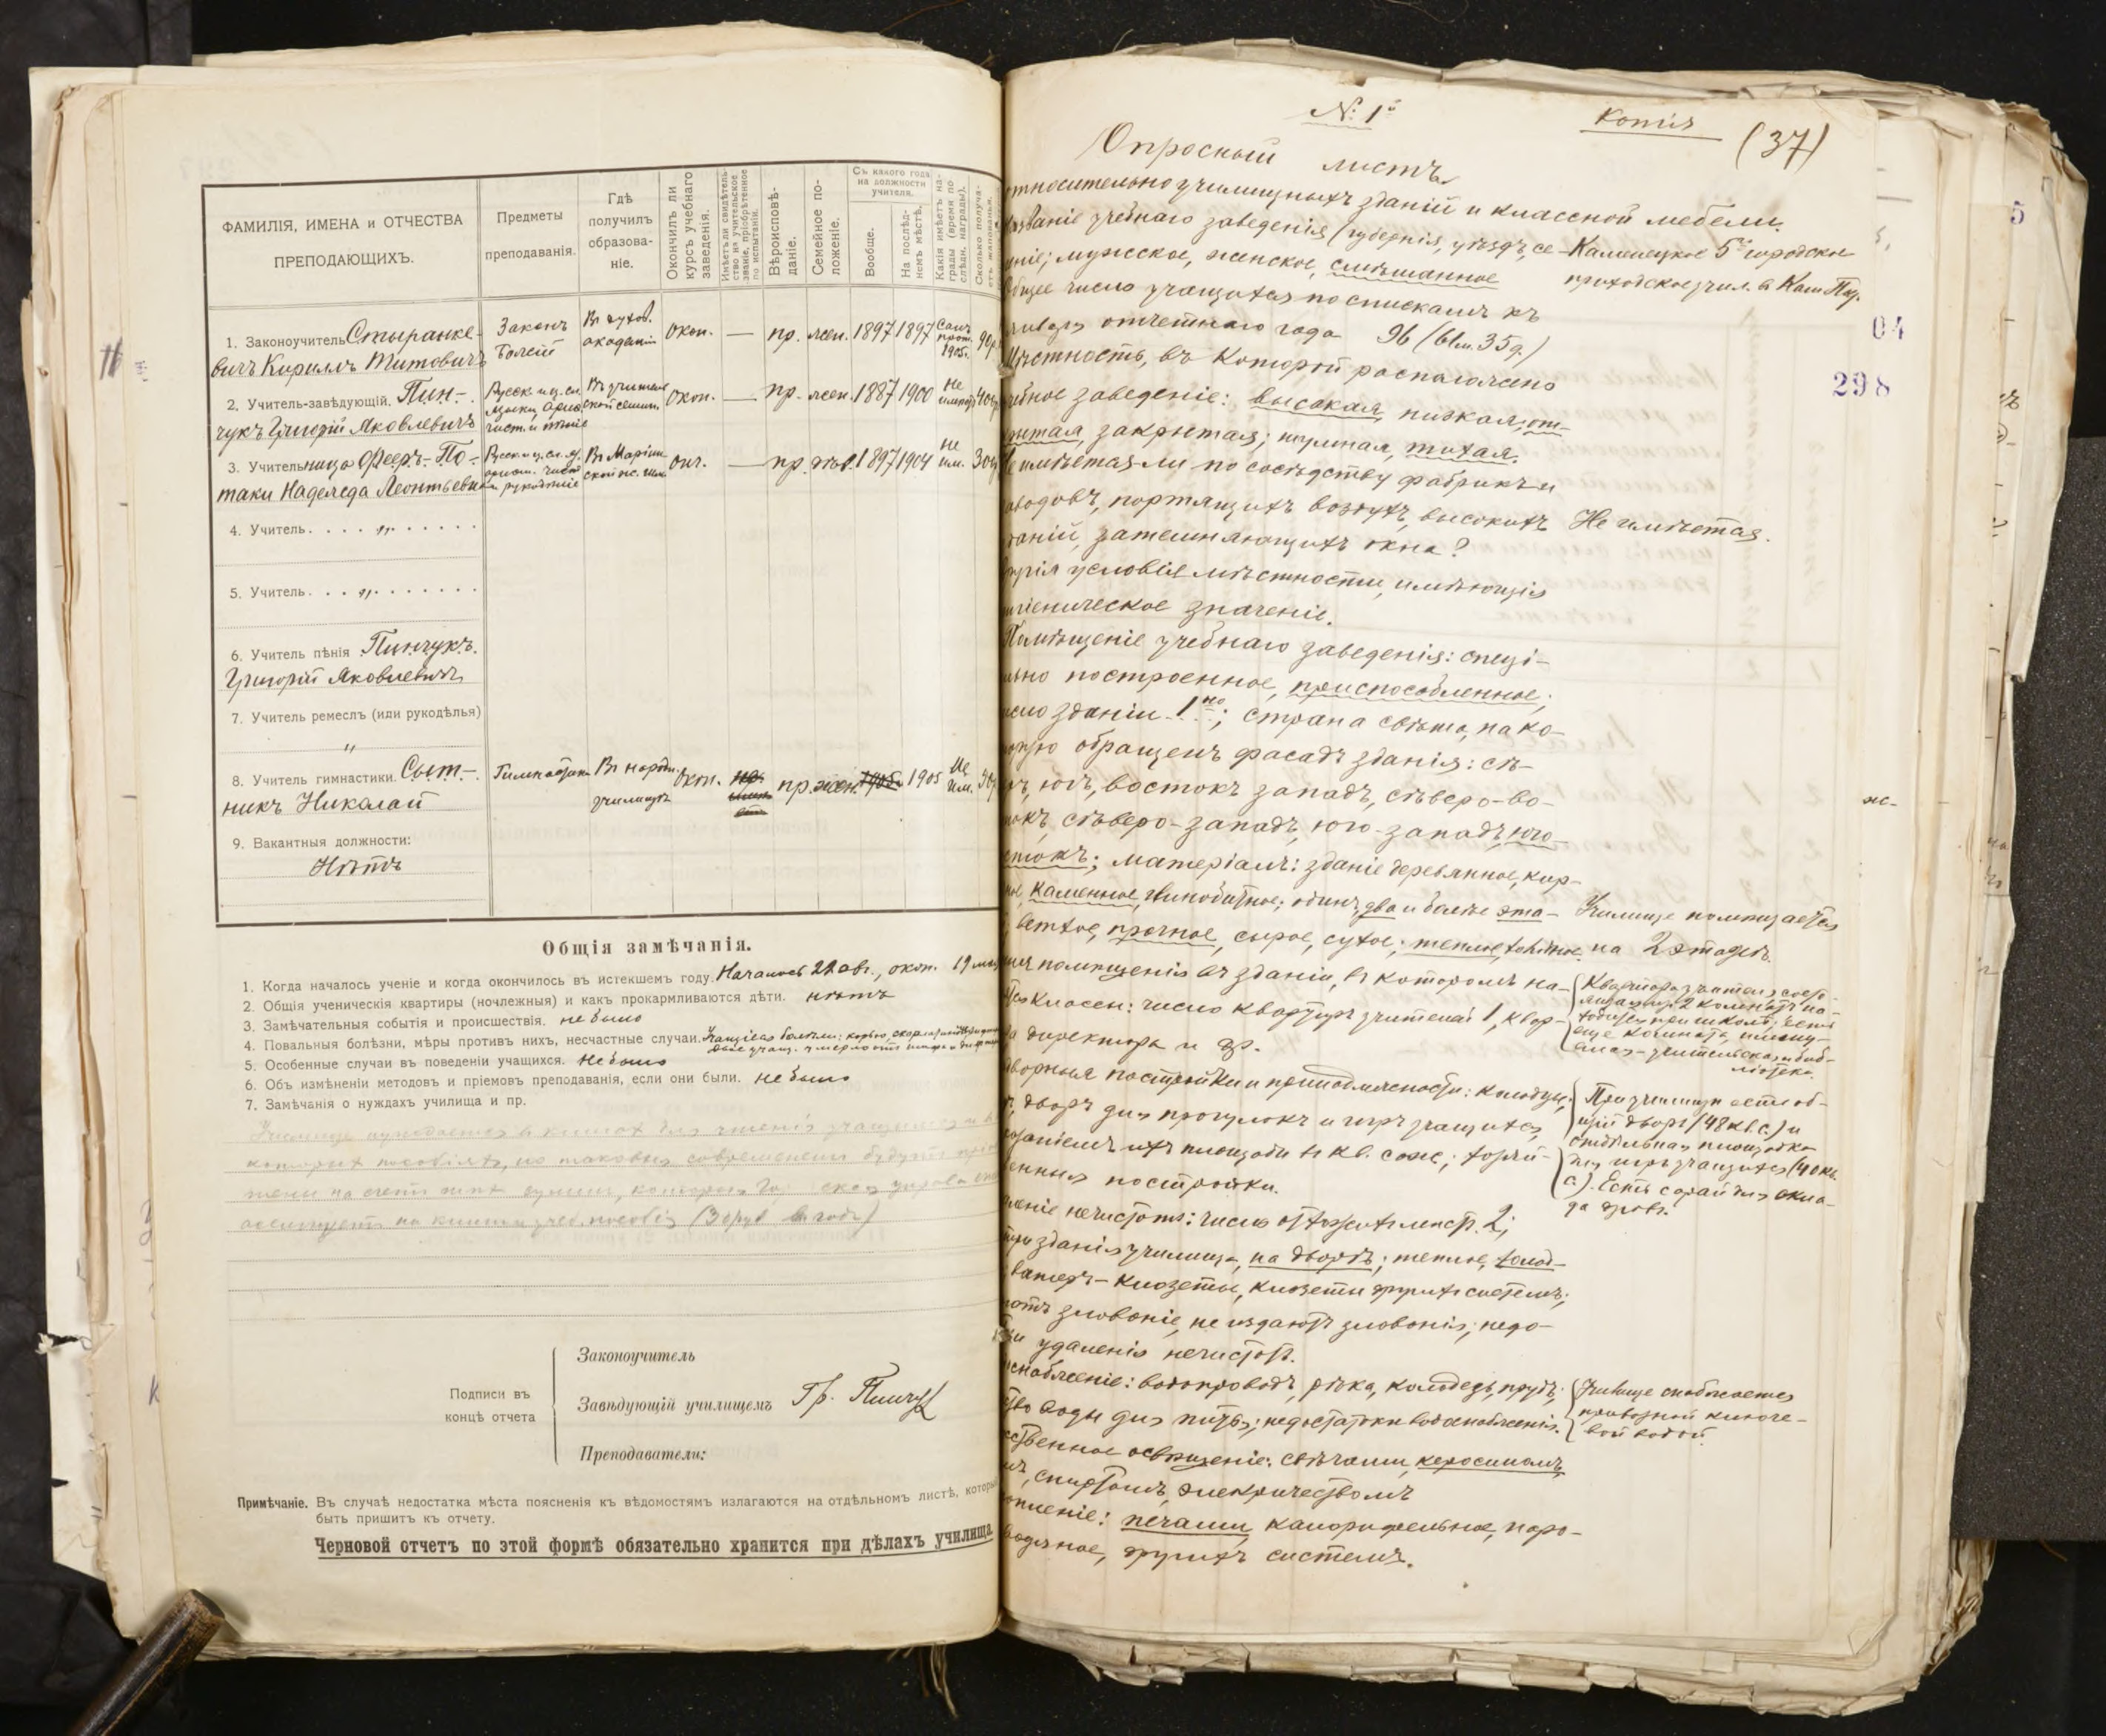 ФАМИЛІЯ, ИМЕНА и ОТЧЕСТВА ПРЕПОДАЮЩИХЪ.
Предметы преподаванія.
Гдѣ получилъ образова-ніе.
Окончилъ ли курсъ учебнаго заведенія.
Имѣетъ ли свидѣтель-ство на учительское званіе, пріобрѣтенное по испытанію.
Вѣроисповѣ-даніе.
Семейное по-ложеніе.
Съ какого года на должности учителя.
Вообще.
На послѣд-немъ мѣстѣ.
Какія имѣетъ на-грады (время по слѣдн. награды).
Сколько получа-етъ жалованья.
1. Законоучитель Стыранке-
вичъ Кириллъ Титовичъ
Законъ Божій
Въ духов. академіи
окон. — пр. жен. 1897 1897 Санъ прот. 1905. 90р
2. Учитель-завѣдующій. Пин-
чукъ Григорій Яковлевичъ
Русск и ц. сл. языки арио. чист. и пѣніе
Въ учитель ской семин.
окон. — пр. жен. 1887 1900 не имѣетъ
3. Учительница Фееръ-По-
таки Надежда Леонтьевна
Русск и ц. сл. я. чист. и рукодѣліе
Въ Маріин ской ж. гим.
окт. — пр. 1897 1904 не им.
4. Учитель . . . „ . . . . .
5. Учитель . . . „ . . . . .
6. Учитель пѣнія Пинчукъ.
Григорій Яковлевичъ
7. Учитель ремеслъ (или рукодѣлья)
„
8. Учитель гимнастики. Сыт-
никъ Николай
Гимнастика Въ народн. училищѣ
окт. пр. жен. 1905 не им.
9. Вакантныя должности:
Нѣтъ
Общія замѣчанія.
1. Когда началось ученіе и когда окончилось въ истекшемъ году. Началось 22 авг., окон. 19 мая
2. Общія ученическія квартиры (ночлежныя) и какъ прокармливаются дѣти. нѣтъ
3. Замѣчательныя событія и происшествія. не было
4. Повальныя болѣзни, мѣры противъ нихъ, несчастные случаи. Учащіеся болѣли: корью, скарлатиной
5. Особенные случаи въ поведеніи учащихся. Не было
6. Объ измѣненіи методовъ и пріемовъ преподаванія, если они были. не было
7. Замѣчанія о нуждахъ училища и пр.
Училище нуждается въ книгахъ для чтенія учащимся и въ
которыхъ пособіяхъ, но таковыя современемъ будутъ
на счетъ суммы, которую управа
на книги и учеб. пособія (30 руб въ годъ)
Подписи въ концѣ отчета
Законоучитель
Завѣдующій училищемъ Гр. Пинчукъ
Преподаватели:
Примѣчаніе. Въ случаѣ недостатка мѣста поясненія къ вѣдомостямъ излагаются на отдѣльномъ листѣ, которы
быть пришитъ къ отчету.
Черновой отчетъ по этой формѣ обязательно хранится при дѣлахъ училища
№ 1й
Копія
(37)
Опросный листъ
относительно училищныхъ зданій и классной мебели.
названіе учебнаго заведенія (губернія, уѣздъ, се-
ніе; мужское, женское, смѣшанное
Каменецкое 5е городское
приходское учил. въ Кам Под.
Общее число учащихся по спискамъ къ
отчетнаго года 96 (61 м. 35 д.)
Мѣстность, въ которой расположено
ебное заведеніе: высокая, низкая, от-
крытая, закрытая; шумная, тихая.
Не имѣется-ли по сосѣдству фабрикъ и
аводовъ, портящихъ воздухъ, высокихъ
даній, затемняющихъ окна?
Не имѣется.
ругія условія мѣстности, имѣющія
игіеническое значеніе.
Помѣщеніе учебнаго заведенія: спеці-
льно построенное, приспособленное;
исло зданій 1но; страна свѣта, на ко-
орую обращенъ фасадъ зданія: сѣ-
ръ, югъ, востокъ западъ, сѣверо-во-
окъ, сѣверо-западъ, юго-западъ, юго-
стокъ; матеріалъ: зданіе деревянное, кир-
ное, каменное, глинобитное; одинъ, два и болѣе эта-
ветхое, прочное, сырое, сухое; теплое, холодное.
Училище помѣщается
на 2 этажѣ.
помѣщенія въ зданіи, въ которомъ на-
тся классы: число квартиръ учителей 1, квар-
а директора и др.
Квартира учителя состо-
2 комнатъ на-
ходится при школѣ; есть
еще комната,
учительская и биб-
ліотека.
дворныя постройки и принадлежности: колодцы,
дворъ для прогулокъ и игръ учащихся,
ихъ площади въ кв. саж.; хозяй-
енныя постройки.
При училищѣ есть об-
щій дворъ (48 кв. с.) и
отдѣльная площадка
для игръ учащихся (40 кв.
с.). Есть сарай для скла-
да дровъ.
леніе нечистотъ: число отхожихъ мѣстъ 2;
зданія училища, на дворѣ; теплые, холод-
ватеръ-клозеты, клозеты другихъ системъ;
зловоніе, не издаютъ зловонія; недо-
удаленія нечистотъ.
снабженіе: водопроводъ, рѣка, колодезь, прудъ;
тво воды для питья; недостатки водоснабженія.
Училище снабжается
привозной ключе-
вой водой.
сственное освѣщеніе: свѣчами, керосиномъ,
спиртомъ, электричествомъ
опленіе: печами, калориферное, паро-
водяное, другихъ системъ.
5
04
298